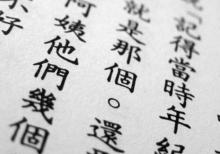 「記得當時年紀
就是那個。還
阿姨他們幾個
好